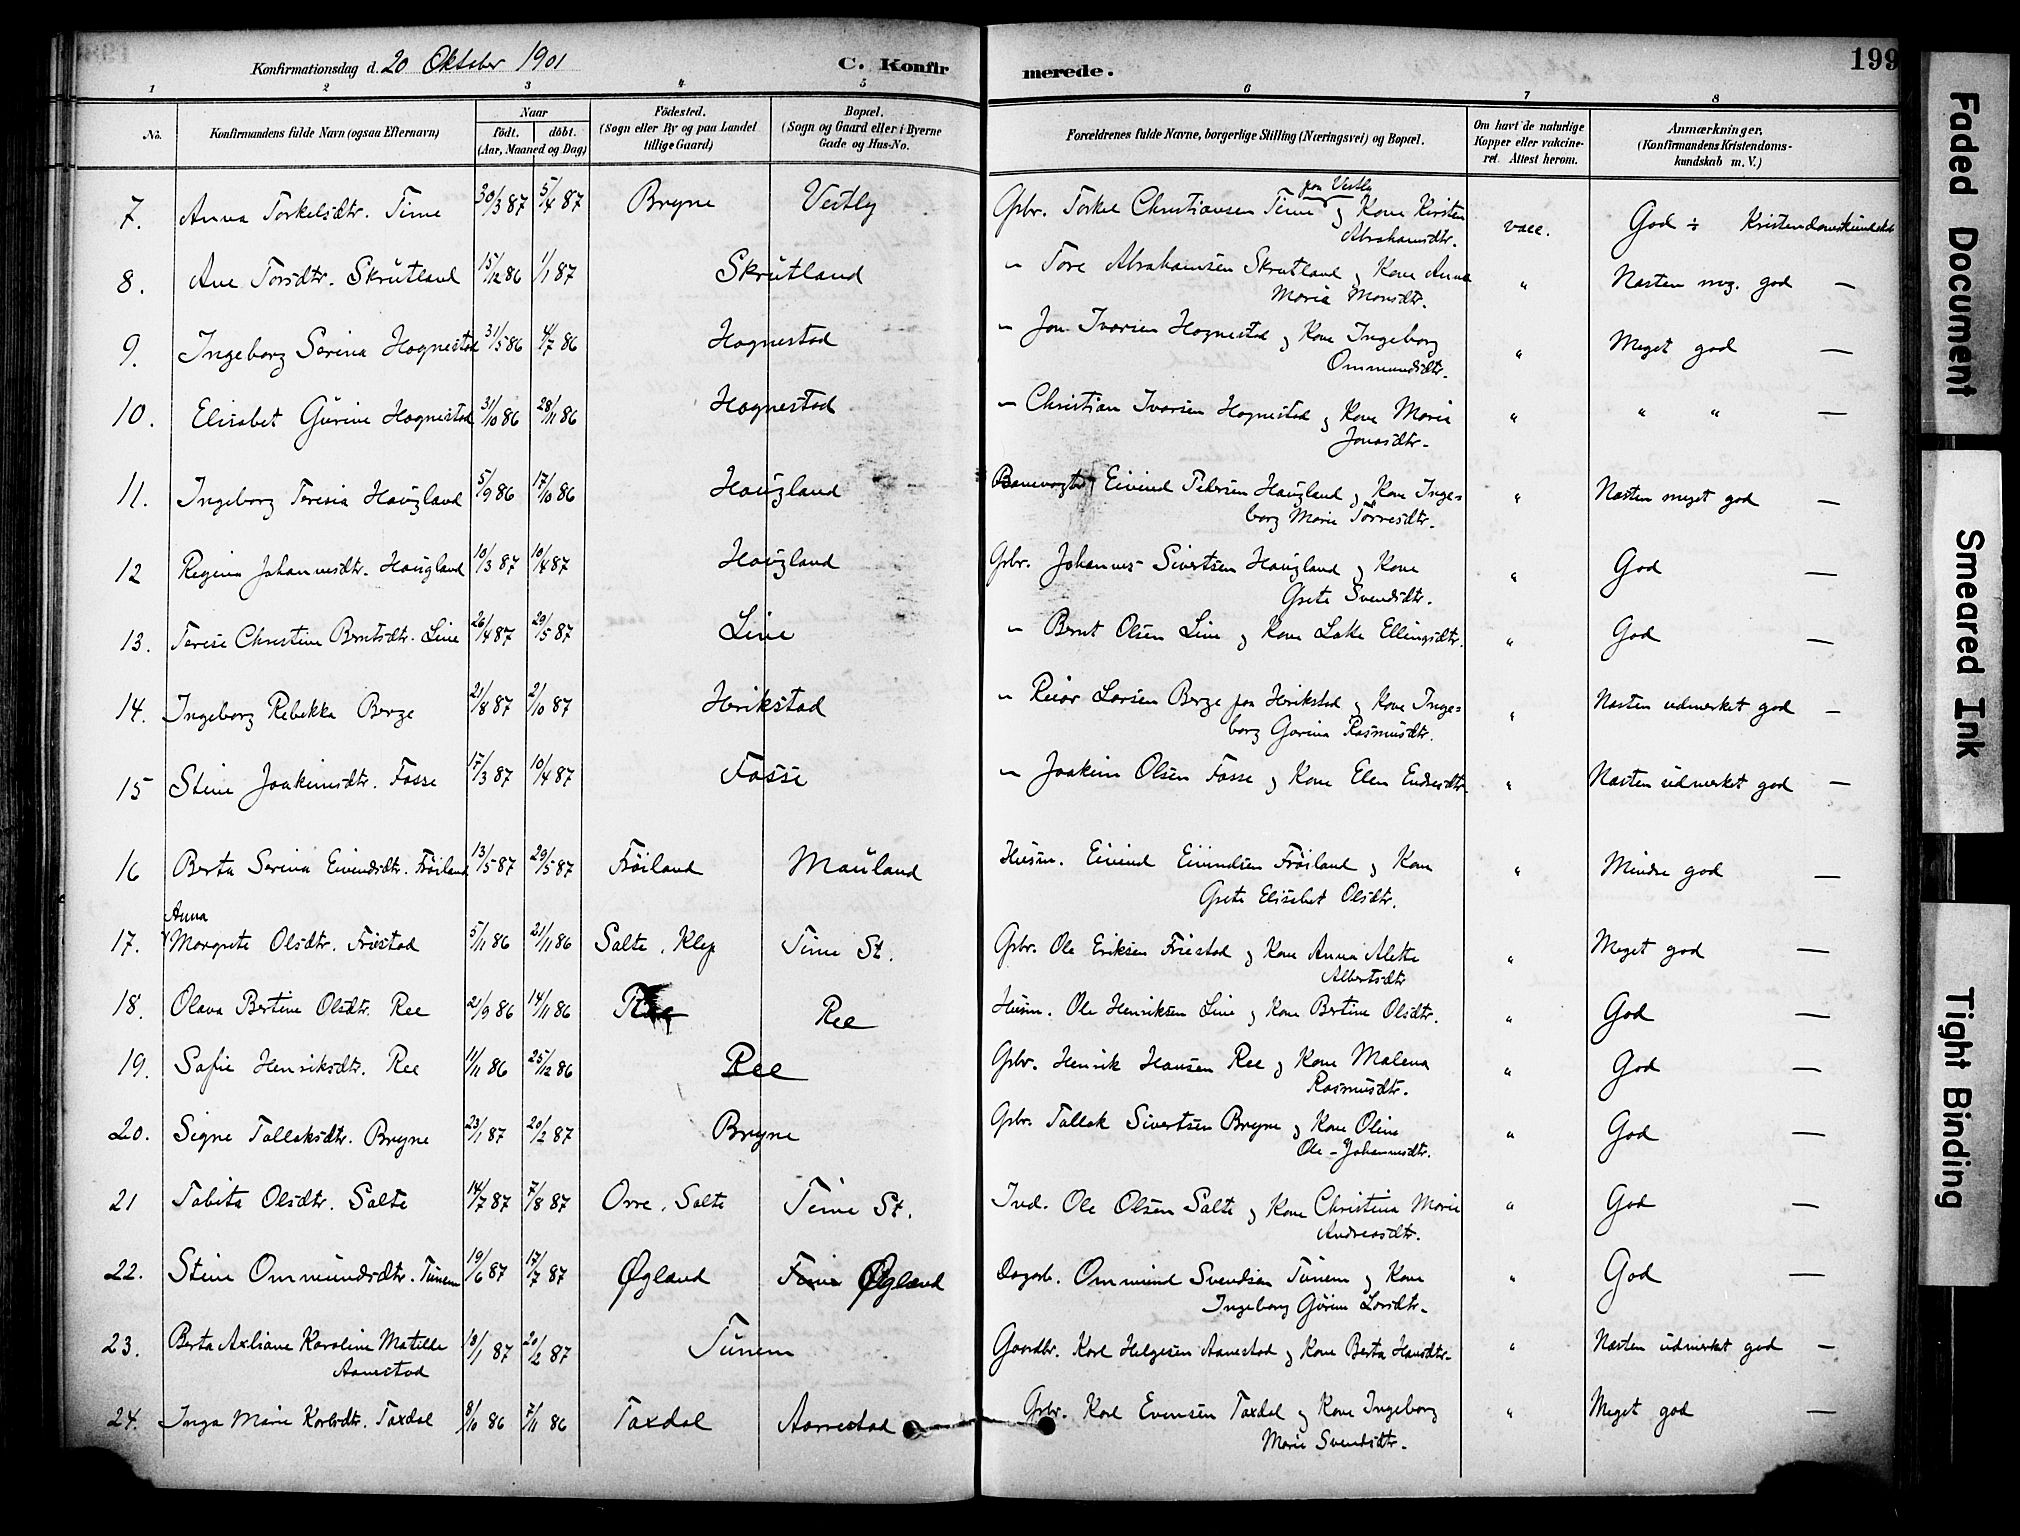 Konfirmationsdag d. 20 Oktober 1901
C. Konfirmerede.
199
1 2 3 4 5 6 7 8
No. Konfirmandens fulde Navn (ogsaa Efternavn) Naar født. døbt. (Aar, Maaned og Dag) Fødested. (Sogn eller By og paa Landet tillige Gaard) Bopæl. (Sogn og Gaard eller i Byerne Gade og Hus-No. Forældrenes fulde Navne, borgerlige Stilling (Næringsvei) og Bopæl. Om havt de naturlige Kopper eller vakcineret. Attest herom. Anmærkninger. (Konfirmandens Kristendomskundskab m. V.)
7. Anna Torkelsdtr. Time 30/3 87 5/4 87 Bryne Vestly Gbr. Torkel Christiansen Time paa Vestly og Kone Kirsten Abrahamsdtr. vacc. God ÷ Kristendomskundskab
8. Ane Torsdtr. Skrutland 15/12 86 1/1 87 Skrutland " Tore Abrahamsen Skrutland og Kone Anna Maria Monsdtr. " Næsten mg. god —
9. Ingeborg Serina Hognestad 31/5 86 4/7 86 Hognestad " Jon Ivarsen Hognestad og Kone Ingeborg Ommundsdtr. " Meget god —
10. Elisabet Gurine Hognestad 31/10 86 28/11 86 Hognestad " Christian Ivarsen Hognestad og Kone Maria Jonasdtr. " " " —
11. Ingeborg Teresia Haugland 5/9 86 17/10 86 Haugland Banevogter Eivind Pedersen Haugland og Kone Ingeborg Marie Torresdtr. " Næsten meget god —
12 Regina Johannesdtr. Haugland 10/3 87 10/4 87 Haugland Gbr. Johannes Sivertsen Haugland og Kone Grete Svendsdtr. " God —
13. Terese Christine Berntsdtr. Line 26/4 87 29/5 87 Line " Bernt Olsen Line og Kone Lotte Ellingsdtr. " God —
14. Ingeborg Rebekka Berge 21/8 87 2/10 87 Herikstad " Reiar Larsen Berge paa Herikstad og Kone Ingeborg Gorina Rasmusdtr. " Næsten udmerket god —
15 Stine Joakimsdtr. Fosse 17/3 87 10/4 87 Fosse " Joakim Olsen Fosse og Kone Elen Endresdtr. " Næsten udmerket god —
16 Berta Serina Eivindsdtr. Frøiland 13/5 87 29/5 87 Frøiland Mauland Husm. Eivind Eivindsen Frøiland og Kone Grete Elisabet Olsdtr. " Mindre god —
17. Anna Margrete Olsdtr. Friestad 5/11 86 21/11 86 Salte, Klep Time St. Gbr. Ole Eriksen Friestad og Kone Anna Alette Albertsdtr " Meget god —
18. Olava Bertine Olsdtr. Ree 21/9 86 14/11 86 Ree Husm. Ole Henriksen Line og Kone Bertine Olsdtr. " God —
19. Sofie Henriksdtr. Ree 11/11 86 25/12 86 Ree Gbr. Henrik Hansen Ree og Kone Malena Rasmusdtr. " God —
20. Signe Tallaksdtr. Bryne 23/1 87 20/2 87 Bryne Gbr. Tallak Sivertsen Bryne og Kone Oline Ole-Johannesdtr. " God —
21 Tabita Olsdtr. Salte 14/7 87 7/8 87 Orre, Salte Time St. Ind. Ole Olsen Salte og Kone Christina Marie Andreasdtr. " God —
22. Stine Ommundsdtr. Tunem 19/6 87 17/7 87 Øgland Time Øgland Dagarb. Ommund Svendsen Tunem og Kone Ingeborg Gurine Larsdtr. " God —
23. Berta Axliane Karoline Matilde Aanestad 18/1 87 20/2 87 Tunem Gaardbr. Karl Helgesen Aanestad og Kone Berta Hansdtr. " Næsten udmerket god —
24. Inga Marie Karlsdtr. Taxdal 8/10 86 7/11 86 Taxdal Aarrestad Gbr. Karl Evensen Taxdal og Kone Ingeborg Marie Svendsdtr. " Meget god —
Faded Document
Smeared Ink
Tight Binding